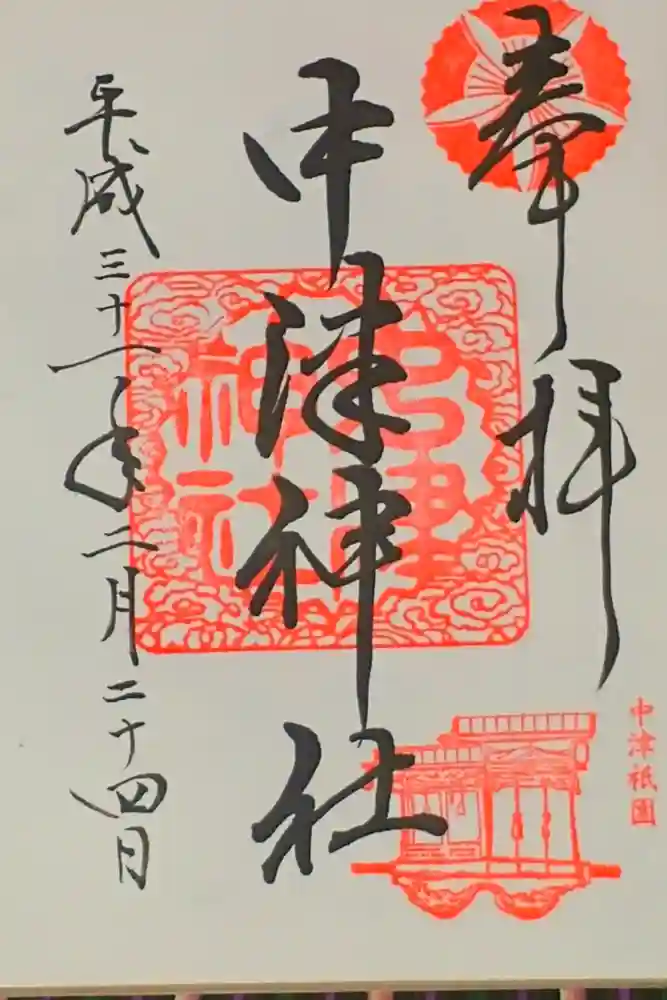 奉拝
中津神社
中津神社
平成三十一年二月二十四日
中津祇園